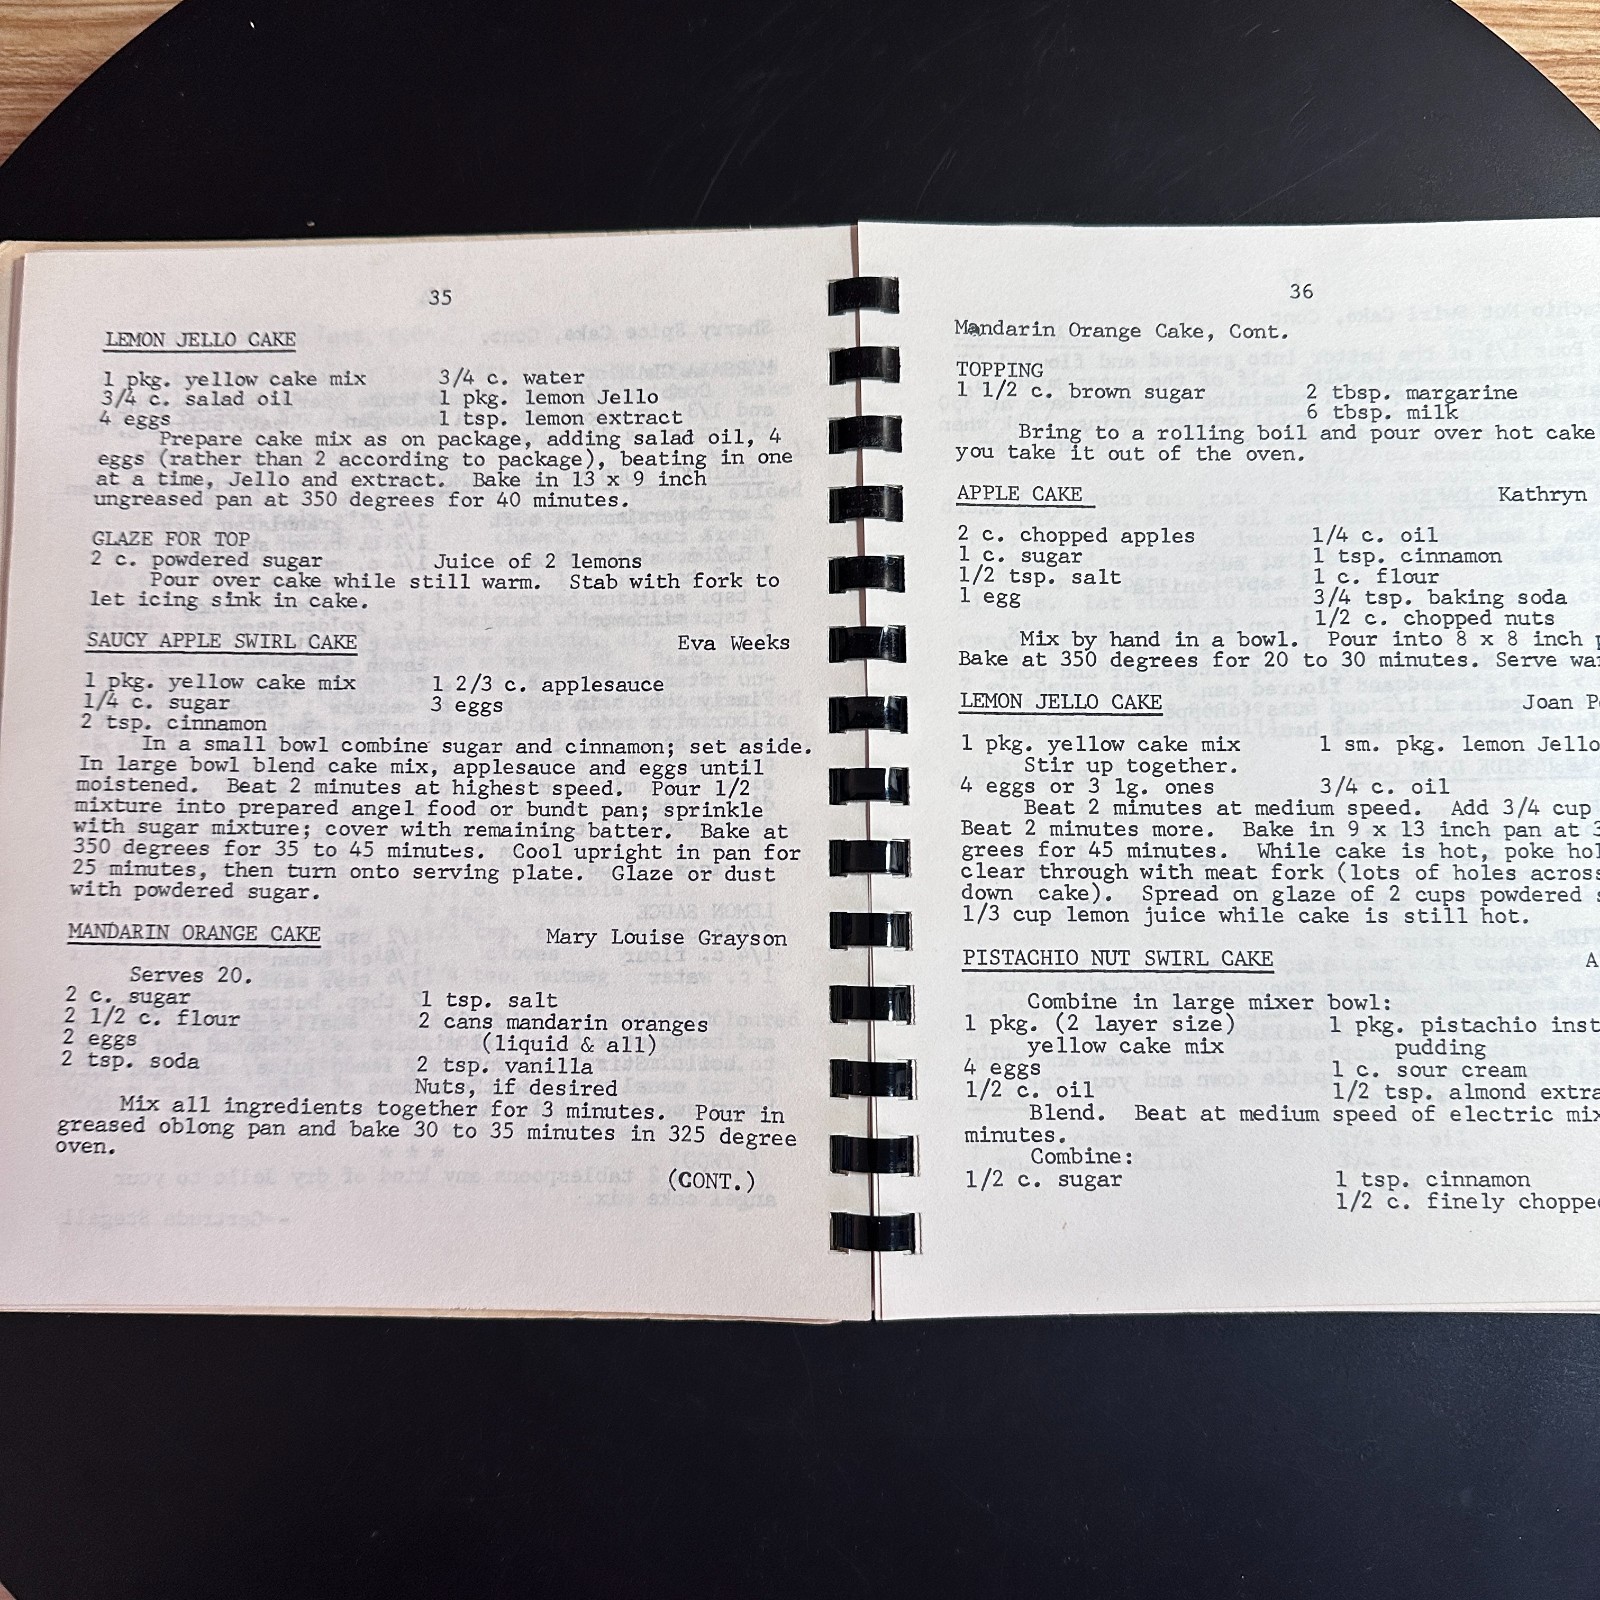 35
LEMON JELLO CAKE
1 pkg. yellow cake mix 3/4 c. water
3/4 c. salad oil 1 pkg. lemon Jello
4 eggs 1 tsp. lemon extract
Prepare cake mix as on package, adding salad oil, 4
eggs (rather than 2 according to package), beating in one
at a time, Jello and extract. Bake in 13 x 9 inch
ungreased pan at 350 degrees for 40 minutes.
GLAZE FOR TOP
2 c. powdered sugar Juice of 2 lemons
Pour over cake while still warm. Stab with fork to
let icing sink in cake.
SAUCY APPLE SWIRL CAKE Eva Weeks
1 pkg. yellow cake mix 1 2/3 c. applesauce
1/4 c. sugar 3 eggs
2 tsp. cinnamon
In a small bowl combine sugar and cinnamon; set aside.
In large bowl blend cake mix, applesauce and eggs until
moistened. Beat 2 minutes at highest speed. Pour 1/2
mixture into prepared angel food or bundt pan; sprinkle
with sugar mixture; cover with remaining batter. Bake at
350 degrees for 35 to 45 minutes. Cool upright in pan for
25 minutes, then turn onto serving plate. Glaze or dust
with powdered sugar.
MANDARIN ORANGE CAKE Mary Louise Grayson
Serves 20.
2 c. sugar 1 tsp. salt
2 1/2 c. flour 2 cans mandarin oranges
2 eggs (liquid & all)
2 tsp. soda 2 tsp. vanilla
Nuts, if desired
Mix all ingredients together for 3 minutes. Pour in
greased oblong pan and bake 30 to 35 minutes in 325 degree
oven.
(CONT.)
36
Mandarin Orange Cake, Cont.
TOPPING
1 1/2 c. brown sugar 2 tbsp. margarine
6 tbsp. milk
Bring to a rolling boil and pour over hot cake
you take it out of the oven.
APPLE CAKE Kathryn
2 c. chopped apples 1/4 c. oil
1 c. sugar 1 tsp. cinnamon
1/2 tsp. salt 1 c. flour
1 egg 3/4 tsp. baking soda
1/2 c. chopped nuts
Mix by hand in a bowl. Pour into 8 x 8 inch
Bake at 350 degrees for 20 to 30 minutes. Serve
LEMON JELLO CAKE Joan
1 pkg. yellow cake mix 1 sm. pkg. lemon Jello
Stir up together.
4 eggs or 3 lg. ones 3/4 c. oil
Beat 2 minutes at medium speed. Add 3/4 cup
Beat 2 minutes more. Bake in 9 x 13 inch pan at
grees for 45 minutes. While cake is hot, poke
clear through with meat fork (lots of holes across
down cake). Spread on glaze of 2 cups powdered
1/3 cup lemon juice while cake is still hot.
PISTACHIO NUT SWIRL CAKE
Combine in large mixer bowl:
1 pkg. (2 layer size) 1 pkg. pistachio
yellow cake mix pudding
4 eggs 1 c. sour cream
1/2 c. oil 1/2 tsp. almond
Blend. Beat at medium speed of electric
minutes.
Combine:
1/2 c. sugar 1 tsp. cinnamon
1/2 c. finely